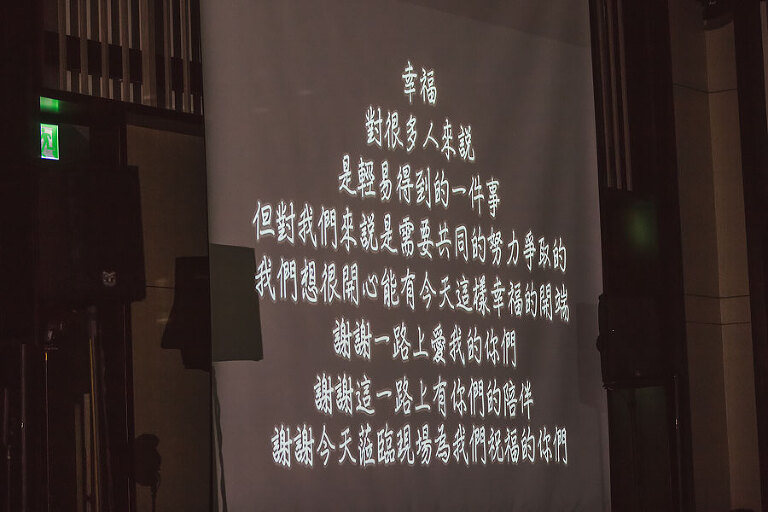 幸福
對很多人來說
是輕易得到的一件事
但對我們來說是需要共同的努力爭取的
我們想很開心能有今天這樣幸福的開端
謝謝一路上愛我的你們
謝謝這一路上有你們的陪伴
謝謝今天蒞臨現場為我們祝福的你們